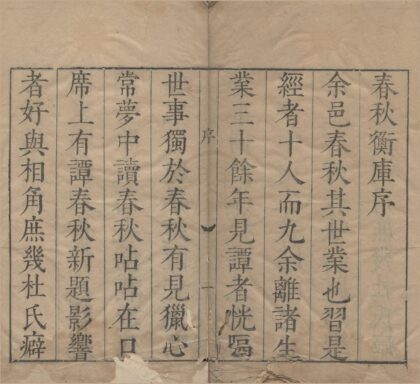 春秋衡庫序
余邑春秋其世業也習是
經者十人而九余離諸生
業三十餘年見譚者恍隔
序
一
世事獨於春秋有見獵心
常夢中讀春秋呫呫在口
席上有譚春秋新題影響
者好與相角庶幾杜氏癖